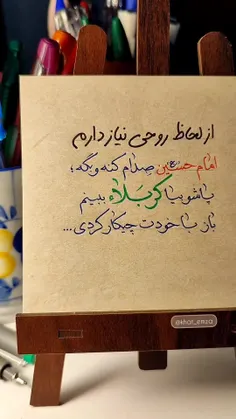 از لحاظ روحی نیاز دارم
امام حسین صدام کنه و بگه؛
پاشو بیا کربلاء ببینم
باز با خودت چیکار کردی...
@khat_emza